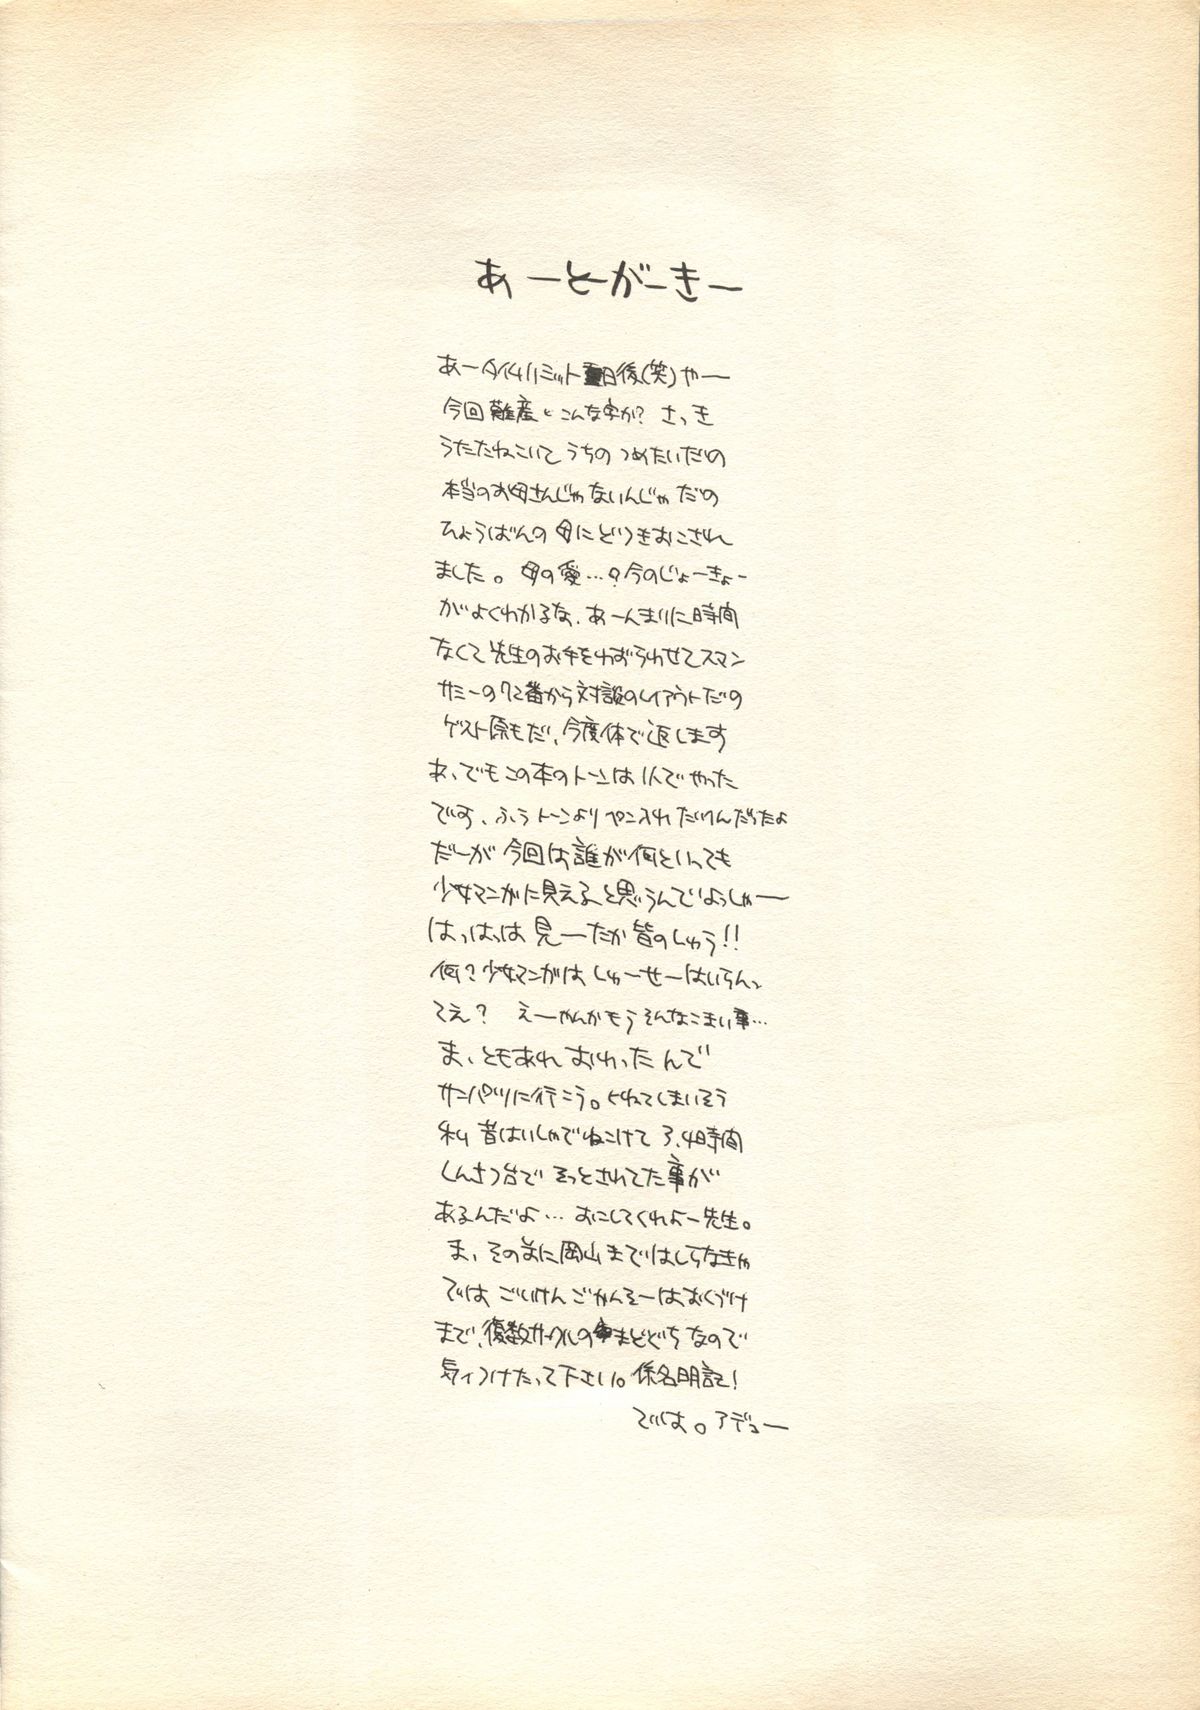 あーとーがーきー
あータイムリミット日後(笑)やー
今回難産とこんな字か? さっき
うたたねこいてうちのつめたいだの
本当のお母さんじゃないんじゃだの
ひょうばんの母にどつきおこされ
ました。母の愛…?今のじょーきょー
がよくわかるな、あーんまりに時間
なくて先生のお手をわずらわせてスマン
サミーの72番から対談のレイアウトだの
ゲスト原もだ、今度体で返します
あ、でもこの本のトーンは1人でやった
です、ふうトーンよりペン入れだけんだったよ
だーが今回は誰が何といっても
少女マンガに見えると思うんでよっしゃー
はっはっは見ーたか皆のしゅう!!
何?少女マンガはしゅーせーはいらんっ
てえ? えーやんかもうそんなこまい事…
ま、ともあれおわったんで
サンパツに行こう。ねてしまいそう
私昔はいしゃでねこけて3、4時間
しんさつ台でそっとされてた事が
あるんだよ…おこしてくれよー先生。
ま、その前に岡山まではしらなきゃ
ではごいけんごかんそーはおくづけ
まで、複数サークルのまどぐちなので
気ィつけたって下さい。係名明記!
では。アデュー